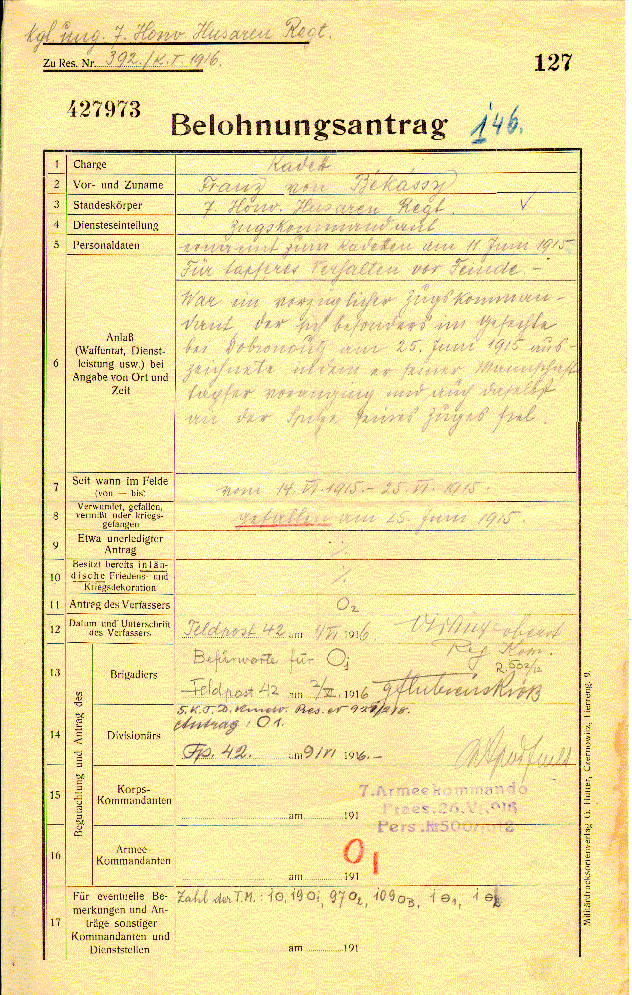 Kgl. ung. 7. Honv. Husaren Regt.
Zu Res. Nr. 392./K.T. 1916.
127
427973
Belohnungsantrag 146.
1 Charge Kadett
2 Vor- und Zuname Franz von Békássy
3 Standeskörper 7. Honv. Husaren Regt.
4 Diensteseinteilung Zugskommandant
5 Personaldaten ernannt zum Kadetten am 11 Juni 1915
Für tapferes Verhalten vor Feinde. -
6 Anlaß (Waffentat, Dienstleistung usw.) bei Angabe von Ort und Zeit
War ein vorzüglicher Zugskomman-
dant, der besonders im Gefechte
bei am 25. Juni 1915 aus-
zeichnete indem er seiner Mannschaft
tapfer voranging und auch daselbst
an der Spitze seines Zuges fiel.
7 Seit wann im Felde (von — bis) vom 14. VI. 1915. - 25. VI. 1915.
8 Verwundet, gefallen, vermißt oder kriegsgefangen gefallen am 25. Juni 1915.
9 Etwa unerledigter Antrag ·/.
10 Besitzt bereits inländische Friedens- und Kriegsdekoration ·/.
11 Antrag des Verfassers O2
12 Datum und Unterschrift des Verfassers Feldpost 42 am /VI 1916 oberst
Reg. Kom.
Begutachtung und Antrag des
13 Brigadiers Befürworte für O1
Feldpost 42 am 2/VI. 1916
14 Divisionärs 5. K.T.D. Kmdo. Res. № 
Antrag: O1.
Fp. 42. am 9/VI 1916.-
15 Korps-Kommandanten
am 191
7. Armeekommando
Praes. 26. VI. 916
Pers. №
16 Armee-Kommandanten O1
am 191
17 Für eventuelle Bemerkungen und Anträge sonstiger Kommandanten und Dienststellen
Zahl der T.M.:
am 191
Militärdrucksortenverlag G. Hutter, Czernowitz, Herreng. 9.